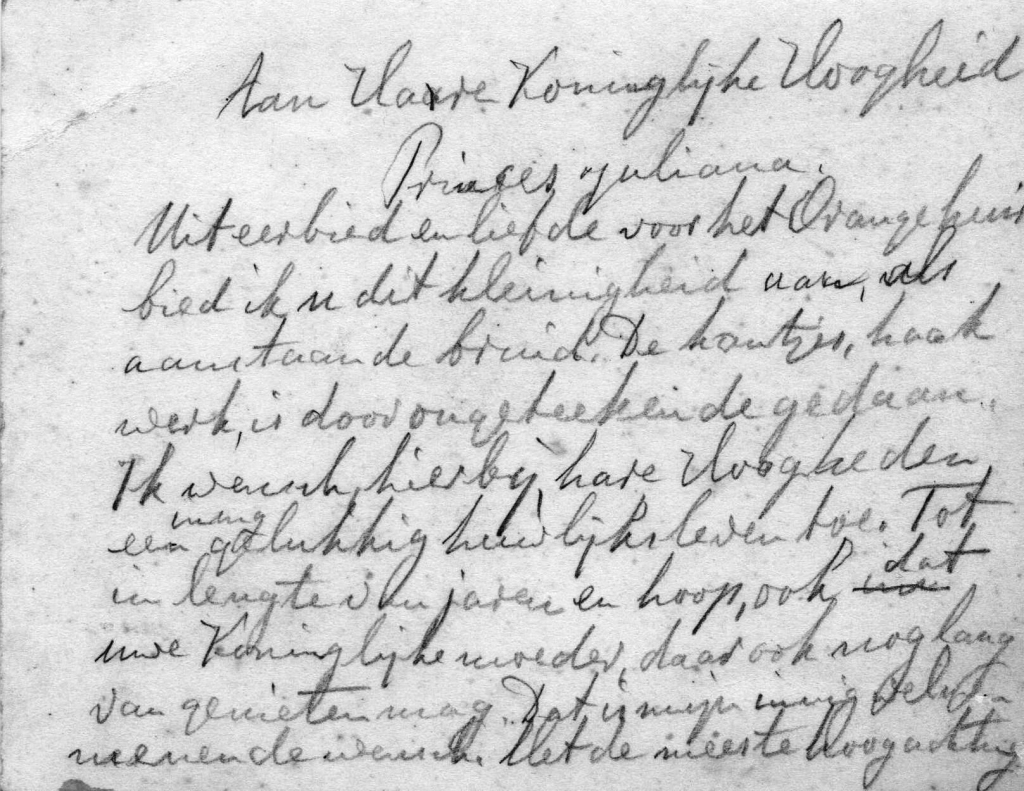 Aan Haare Koninglijke Hoogheid
Prinses Juliana.
Uit eerbied en liefde voor het Orangehuis
bied ik u dit kleinigheid aan, als
aanstaande bruid. De kantjes, haak
werk, is door ongeteekende gedaan.
Ik wensch, hierbij, hare Hoogheden
innig
een gelukkig huwlijksleven toe. Tot
dat
in lengte van jaren en hoop, ook
uwe Koninglijke moeder, daar ook nog lang
van genieten mag. Dat is mijn innig
meenende wensch. Met de meeste Hoogachting